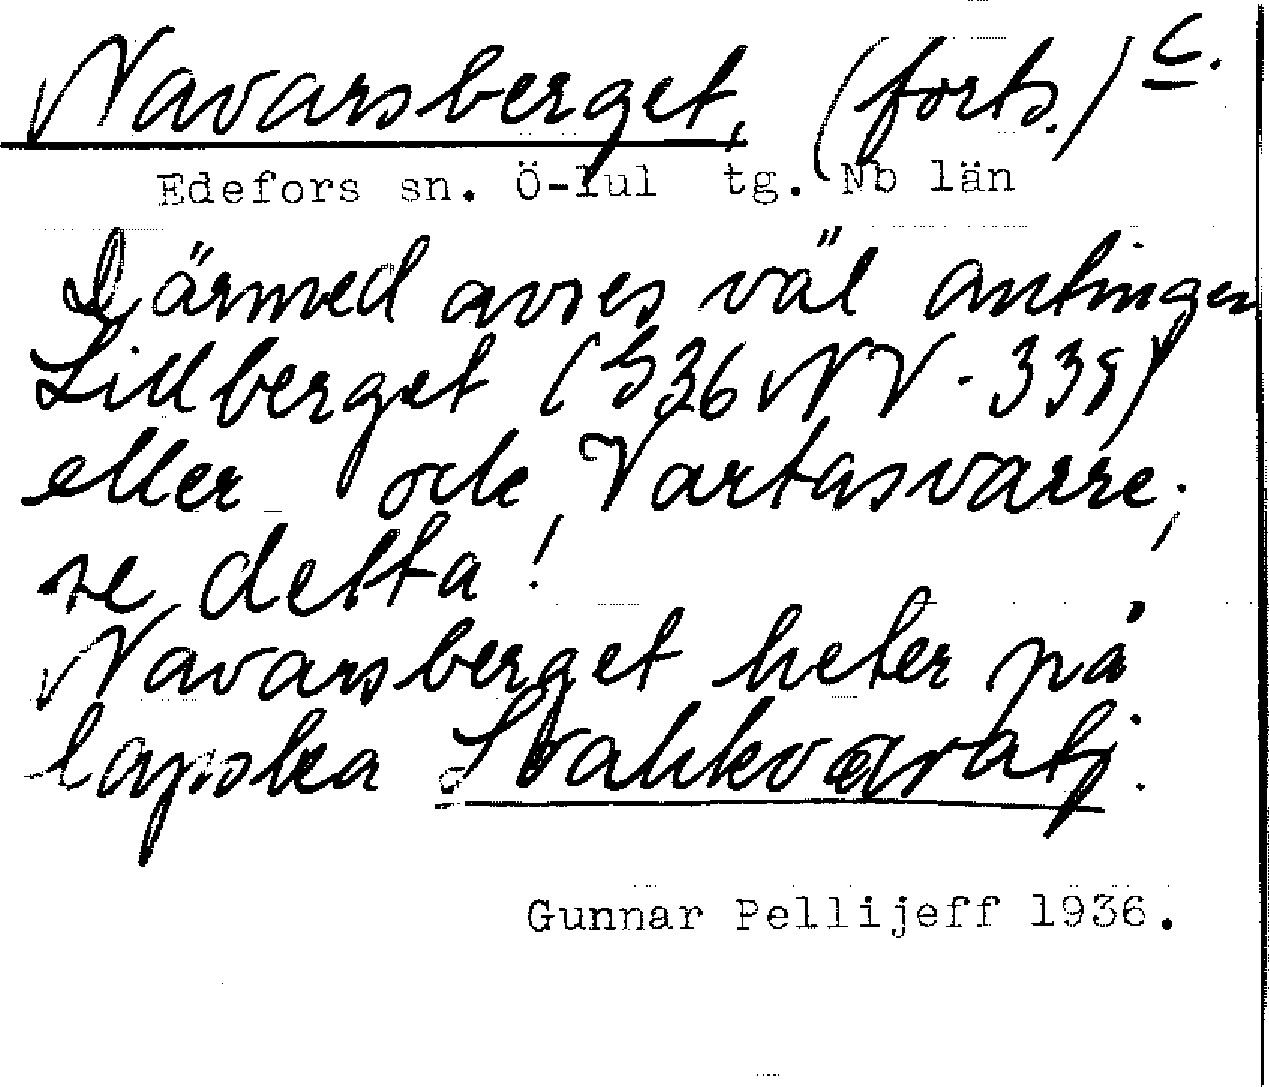 Navarsberget, (forts.) c.
Edefors sn. Ö-lul tg. Nb län
Därmed avses väl antingen
Lillberget (S36 NV - 339)
eller ock Vartasvarre;
se detta!
Navarsberget heter på
lapska
Gunnar Pellijeff 1936.